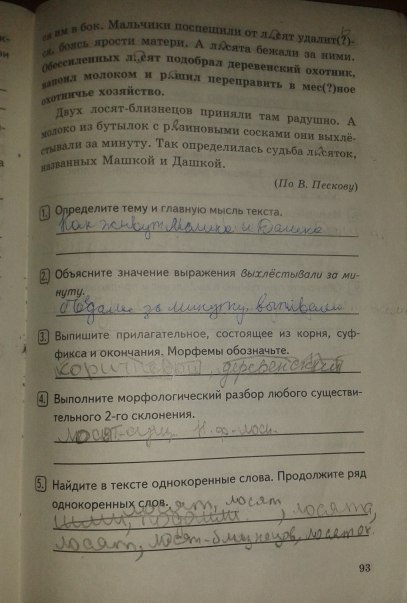 ся им в бок. Мальчики поспешили от л сят удалит(?)-
ся, боясь ярости матери. А л сята бежали за ними.
Обессиленных л сят подобрал деревенский охотник,
напоил молоком и р шил переправить в мес(?)ное
охотничье хозяйство.
Двух лосят-близнецов приняли там радушно. А
молоко из бутылок с р зиновыми сосками они выхлё-
стывали за минуту. Так определилась судьба л сяток,
названных Машкой и Дашкой.
(По В. Пескову)
1. Определите тему и главную мысль текста.
Как живут и
2. Объясните значение выражения выхлёстывали за ми-
нуту.
за минуту выпивали.
3. Выпишите прилагательное, состоящее из корня, суф-
фикса и окончания. Морфемы обозначьте.
коричневой, деревенский
4. Выполните морфологический разбор любого существи-
тельного 2-го склонения.
Н.ф-лось.
5. Найдите в тексте однокоренные слова. Продолжите ряд
однокоренных слов. лосят
, лосята,
лосят, лосят-близнецов, лосяток.
93